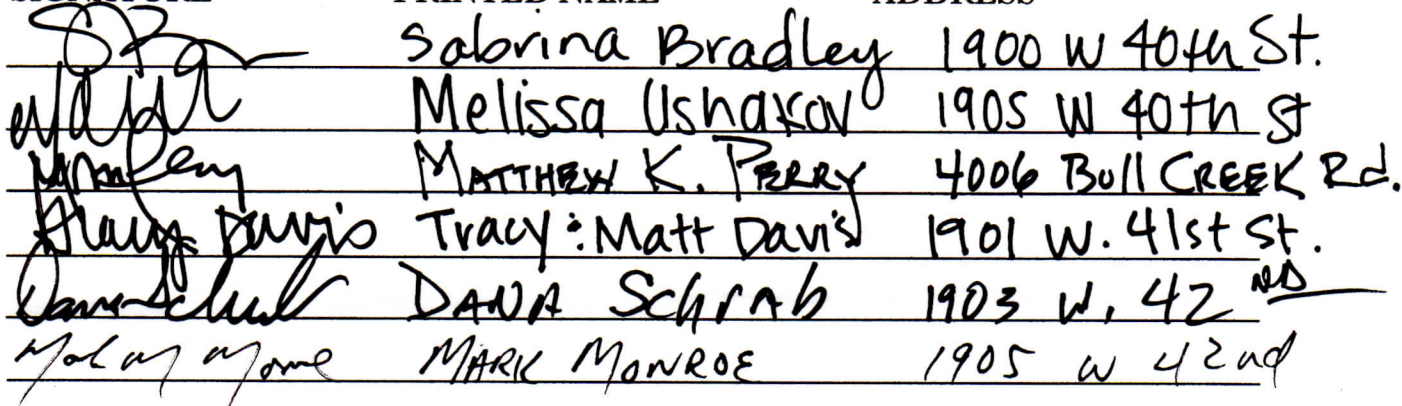 SIGNATURE PRINTED NAME ADDRESS
Sabrina Bradley 1900 W 40th St.
Melissa Ushakov 1905 W 40th St
MATTHEW K. PERRY 4006 Bull CREEK Rd.
Tracy Davis Tracy : Matt Davis 1901 W. 41st St.
DANA Schrab 1903 W. 42 ND
MARK MONROE 1905 W 42nd